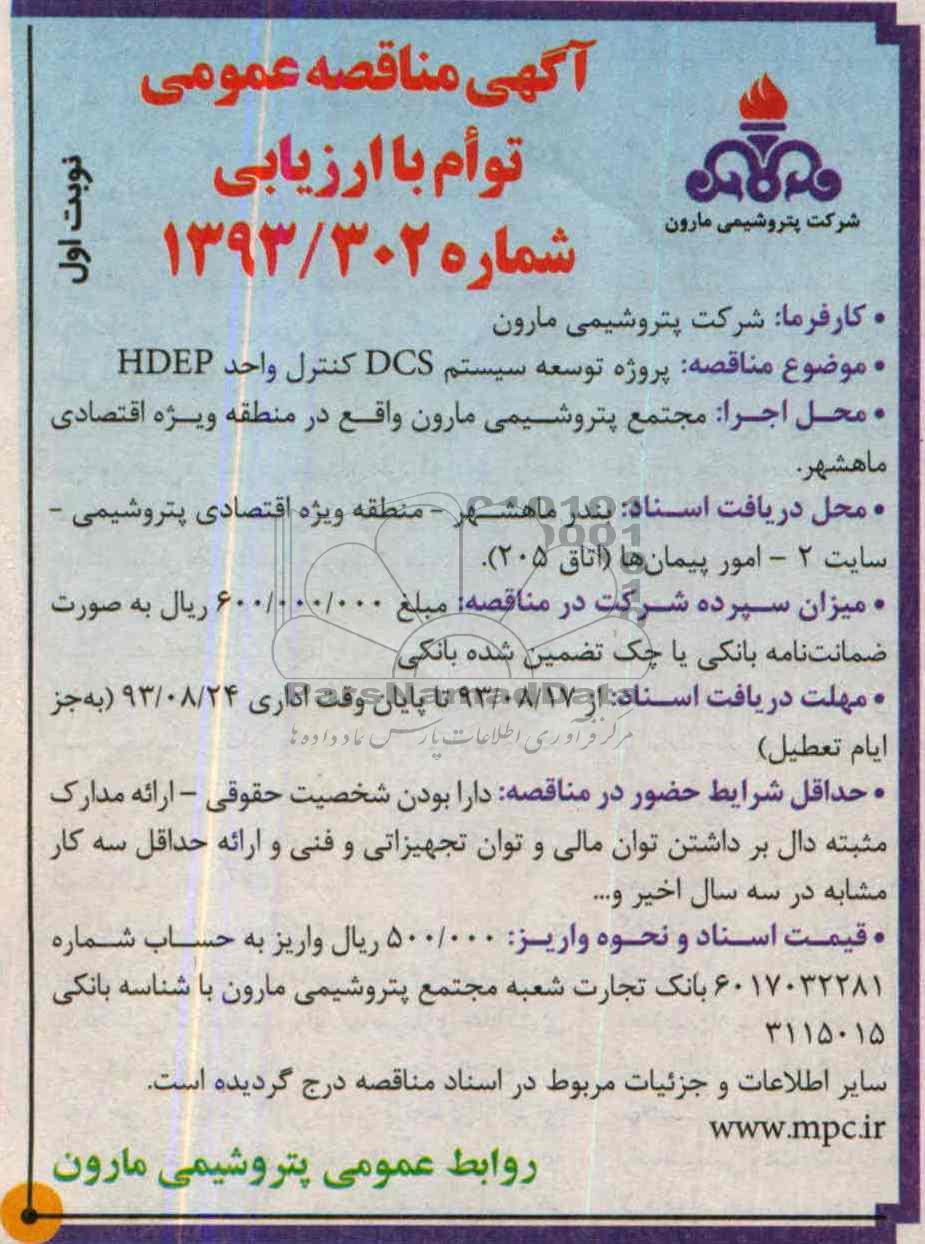 آگهی مناقصه عمومی
توأم با ارزیابی
شماره ۱۳۹۳/۳۰۲
شرکت پتروشیمی مارون
نوبت اول
• کارفرما: شرکت پتروشیمی مارون
• موضوع مناقصه: پروژه توسعه سیستم DCS کنترل واحد HDEP
• محل اجرا: مجتمع پتروشیمی مارون واقع در منطقه ویژه اقتصادی
ماهشهر.
• محل دریافت اسناد: بندر ماهشهر - منطقه ویژه اقتصادی پتروشیمی -
سایت ۲ - امور پیمان‌ها (اتاق ۲۰۵).
• میزان سپرده شرکت در مناقصه: مبلغ ۶۰۰/۰۰۰/۰۰۰ ریال به صورت
ضمانت‌نامه بانکی یا چک تضمین شده بانکی
• مهلت دریافت اسناد: از ۹۳/۰۸/۱۷ تا پایان وقت اداری ۹۳/۰۸/۲۴ (به‌جز
ایام تعطیل)
• حداقل شرایط حضور در مناقصه: دارا بودن شخصیت حقوقی - ارائه مدارک
مثبته دال بر داشتن توان مالی و توان تجهیزاتی و فنی و ارائه حداقل سه کار
مشابه در سه سال اخیر و...
• قیمت اسناد و نحوه واریز: ۵۰۰/۰۰۰ ریال واریز به حساب شماره
۶۰۱۷۰۳۲۲۸۱ بانک تجارت شعبه مجتمع پتروشیمی مارون با شناسه بانکی
۳۱۱۵۰۱۵
سایر اطلاعات و جزئیات مربوط در اسناد مناقصه درج گردیده است.
www.mpc.ir
روابط عمومی پتروشیمی مارون
ParsNamadData
مرکز فرآوری اطلاعات پارس نماد داده ها